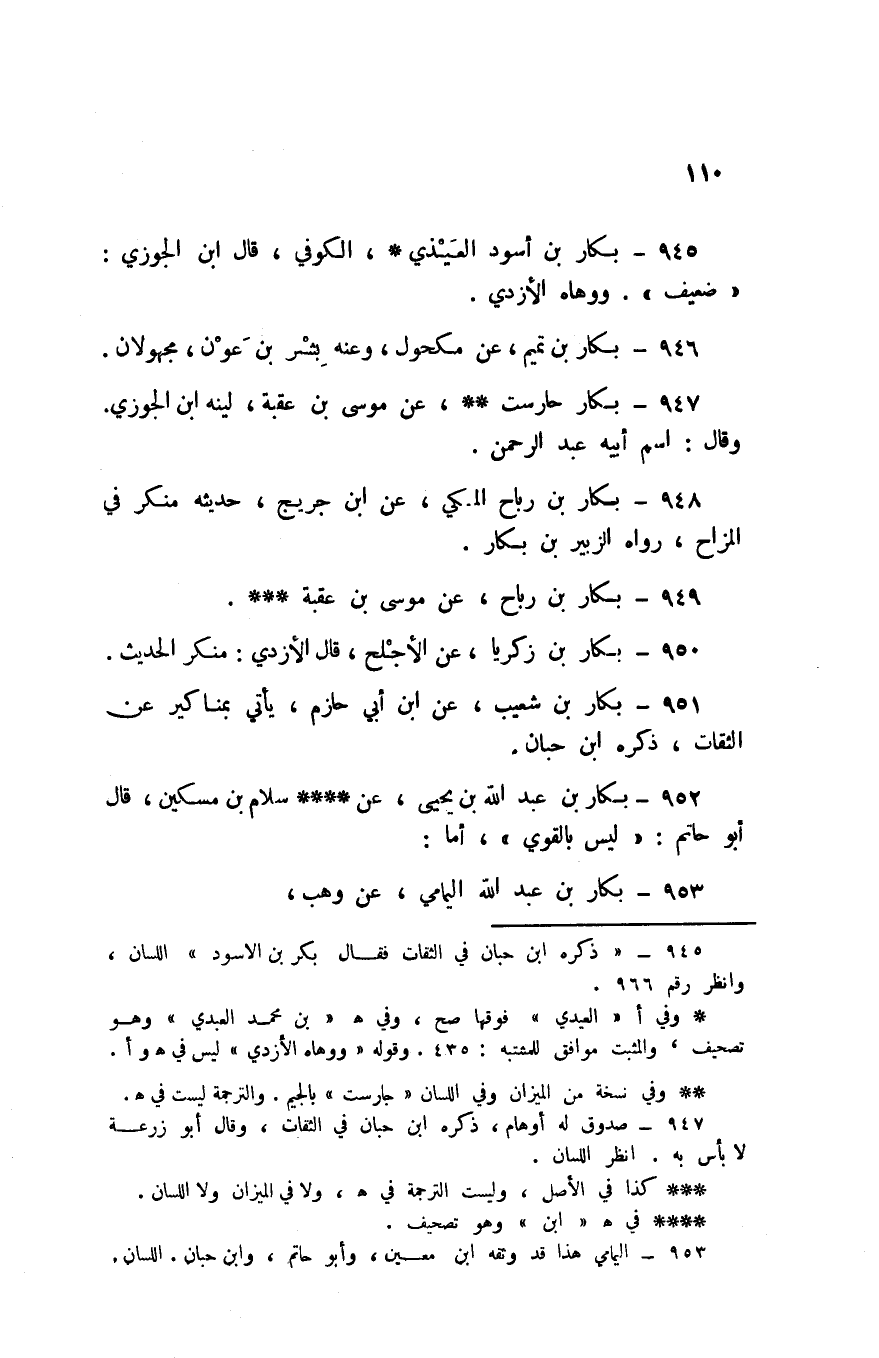 ١١٠
٩٤٥ – بكار بن أسود العَيْذي * ، الكوفي ، قال ابن الجوزي :
« ضعيف » . ووهاه الأزدي .
٩٤٦ – بكار بن تميم ، عن مكحول ، وعنه بِشْر بن عَوْن ، مجهولان .
٩٤٧ – بكار حارست ** ، عن موسى بن عقبة ، لينه ابن الجوزي.
وقال : اسم أبيه عبد الرحمن .
٩٤٨ – بكار بن رباح المكي ، عن ابن جريج ، حديثه منكر في
المزاح ، رواه الزبير بن بكار .
٩٤٩ – بكار بن رباح ، عن موسى بن عقبة *** .
٩٥٠ – بكار بن زكريا ، عن الأجْلح ، قال الأزدي : منكر الحديث .
٩٥١ – بكار بن شعيب ، عن ابن أبي حازم ، يأتي بمناكير عن
الثقات ، ذكره ابن حبان .
٩٥٢ – بكار بن عبد الله بن يحيى ، عن **** سلام بن مسكين ، قال
أبو حاتم : « ليس بالقوي » ، أما :
٩٥٣ – بكار بن عبد الله اليامي ، عن وهب ،
٩٤٥ – « ذكره ابن حبان في الثقات فقال بكر بن الاسود » اللسان ،
وانظر رقم ٩٦٦ .
* وفي أ « العيدي » فوقها صح ، وفي ه « بن محمد العبدي » وهو
تصحيف ، والمثبت موافق للمشتبه : ٤٣٥ . وقوله « ووهاه الأزدي » ليس في ه و أ .
** وفي نسخة من الميزان وفي اللسان « جارست » بالجيم . والترجمة ليست في ه .
٩٤٧ – صدوق له أوهام ، ذكره ابن حبان في الثقات ، وقال أبو زرعة
لا بأس به . انظر اللسان .
*** كذا في الأصل ، وليست الترجمة في ه ، ولا في الميزان ولا اللسان .
**** في ه « ابن » وهو تصحيف .
٩٥٣ – اليامي هذا قد وثقه ابن معين ، وأبو حاتم ، وابن حبان . اللسان .